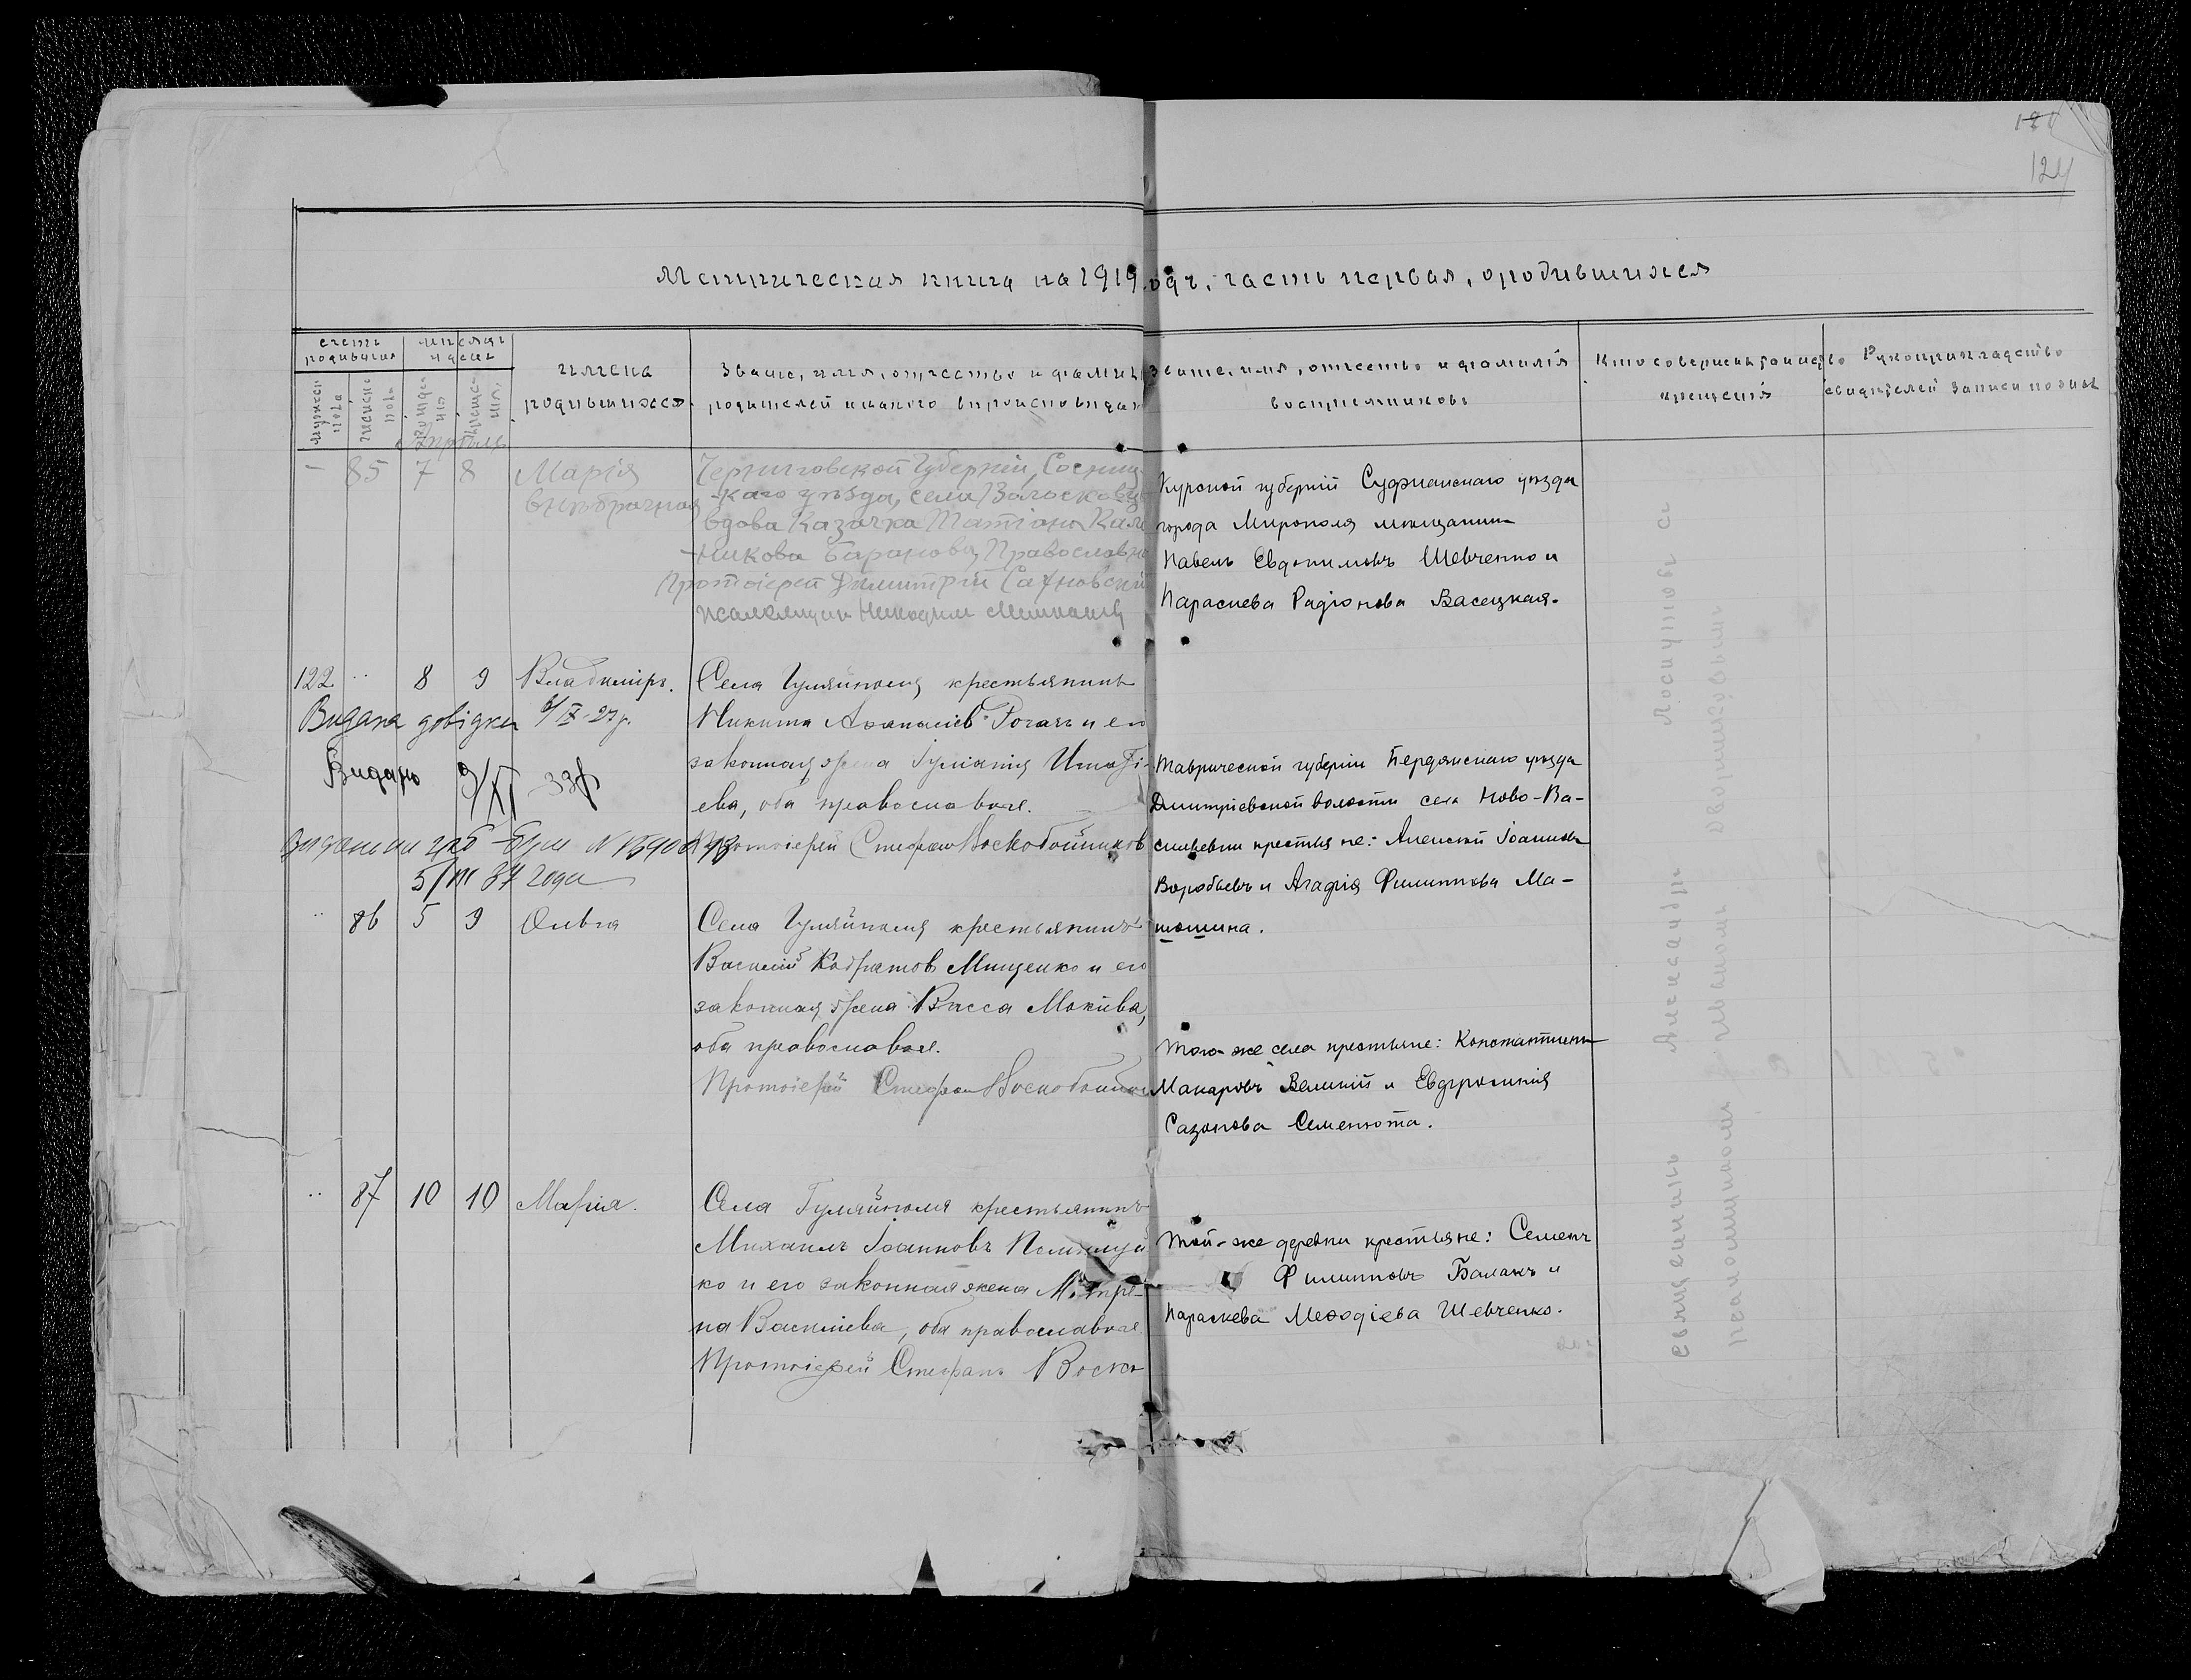 124
Метрическая книга на 1919 годъ, часть первая, о родившихся
счетъ родившихся
мѣсяцъ и день
мужеск пола
женск пола
рожденія
крещенія
имена родившихся
Званіе, имя, отчество и фамилія родителей и какого вѣроисповѣданія
Званіе, имя, отчество и фамилія воспріемниковъ
Кто совершилъ таинство крещенія
Рукоприкладство свидѣтелей записи по
Апрѣля
- 85 7 8 Марія
внѣбрачная
Черниговской Губерніи, Сосниц-
каго уѣзда, села Волосковец
вдова Казачка Татіана Кали
никова Баранова, Православн
Протоіерей Димитрій Сахновскій
псаломщик Никодим
Курской губерніи Суджанскаго уѣзда
города Мирополя мѣщанинъ
Павелъ Евдокимовъ Шевченко и
Параскева Радіонова Васецкая.
122 .. 8 9 Владиміръ.
Видана довідка 6/IX-27р.
Видано 9/XI 33р
5/III 37 года
Села Гуляйполя крестьянинъ
Никита Аѳанасіев Рогачъ и его
законная жена Іуліанія Игнаті-
ева, оба православные.
Протоіерей Стефан Воскобойников
Таврической губерніи Бердянскаго уѣзда
Дмитріевской волости села Ново-Ва-
сильевки крестьяне: Алексѣй Іоанновъ
Воробьевъ и Агафія Филиппова Ма-
тошина.
.. 86 5 9 Ольга
Села Гуляйполя крестьянинъ
Василій Кодратов Мищенко и его
законная жена Васса Мокіева,
оба православные.
Протоіерей Стефан Воскобойников
Того-же села крестьяне: Константинъ
Макаровъ Великій и Евфросинія
Сазонова Семенюта.
.. 87 10 10 Марія.
Села Гуляйполя крестьянинъ
Михаилъ Іоанновъ
ко и его законная жена Матре-
на Васильева, оба православные
Протоіерей Стефанъ Воско
Той-же деревни крестьяне: Семенъ
Филипповъ Баланъ и
Параскева Меѳодіева Шевченко.
Священникъ Александръ
псаломщикомъ